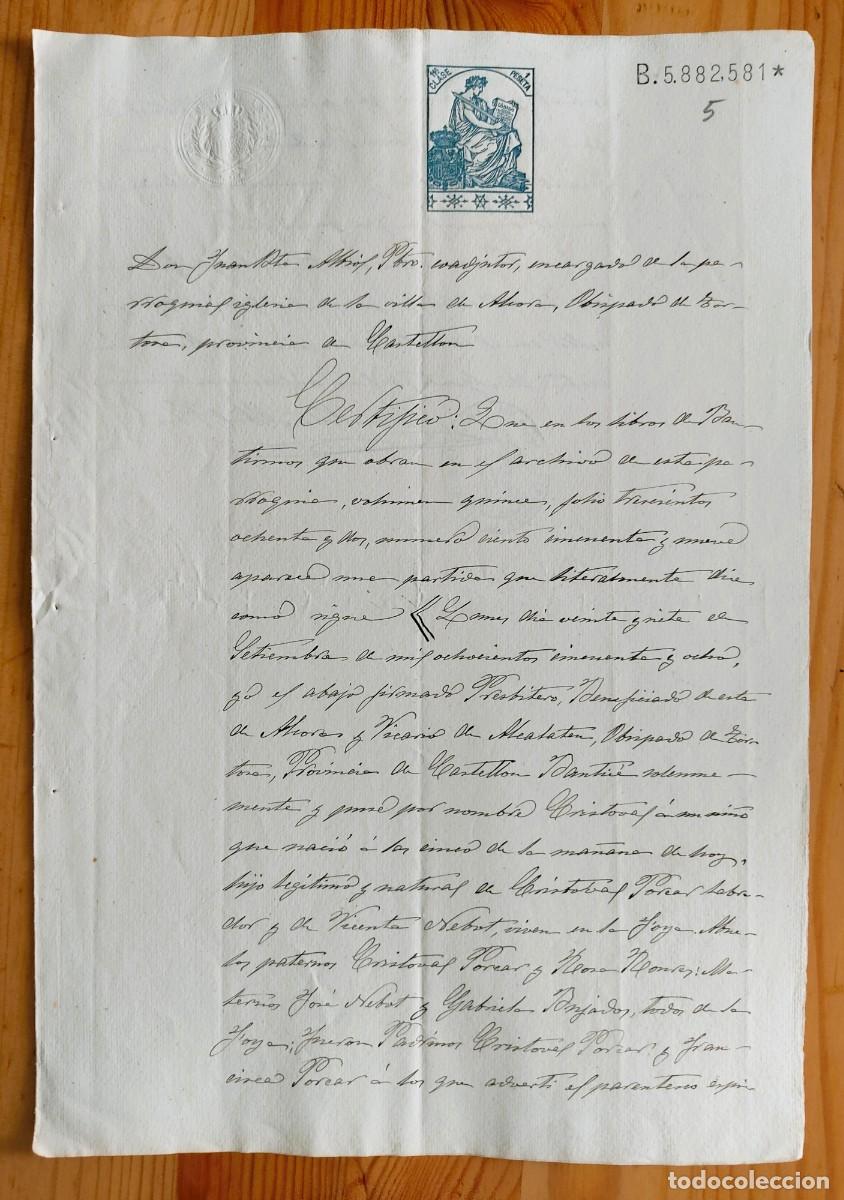 11ª CLASE 1 PESETA
B.5.882,581*
5
Don Juan Bta Albiol, Pbro. coadjutor, encargado de la pa-
rroquial yglesia de la villa de Alcora, Obispado de Tor-
tosa, provincia de Castellon
Certifico: Que en los libros de Bau-
tismos que obran en el archivo de esta pa-
rroquia, volumen quince, folio trescientos
ochenta y dos, numero ciento cincuenta y nueve
aparece una partida que literalmente dice
como sigue Lunes dia veinte y siete de
Setiembre de mil ochocientos cincuenta y ocho,
yo el abajo firmado Presbitero, Beneficiado de esta
de Alcora y Vicario de Alcalaten, Obispado de Tor-
tosa, Provincia de Castellon Bauticé solemne-
mente y puse por nombre Cristoval á un niño
que nació á las cinco de la mañana de hoy,
hijo legitimo y natural de Cristoval Porcar labra-
dor y de Vicenta Nebot, viven en la Foya. Abue-
los paternos Cristoval Porcar y Rosa: Ma-
ternos José Nebot y Gabriela, todos de la
Foya; fueron Padrinos Cristoval Porcar y Fran-
cisca Porcar á los que adverti el parentesco espi-
todocoleccion